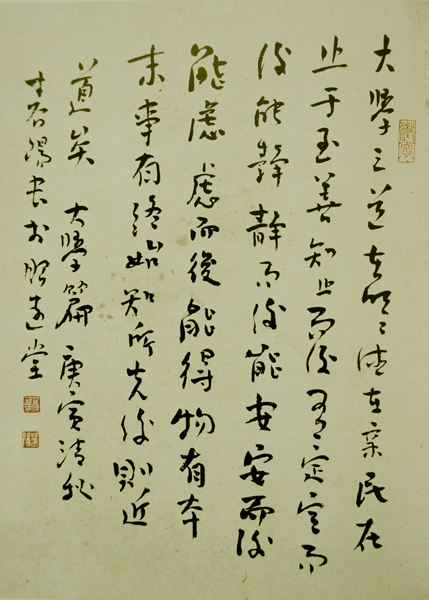 大學之道在明明德在親民在
止于至善知止而後有定定而
後能靜靜而後能安安而後
能慮慮而後能得物有本
末事有終始知所先後則近
道矣 大學篇 庚寅清秋
書於 堂